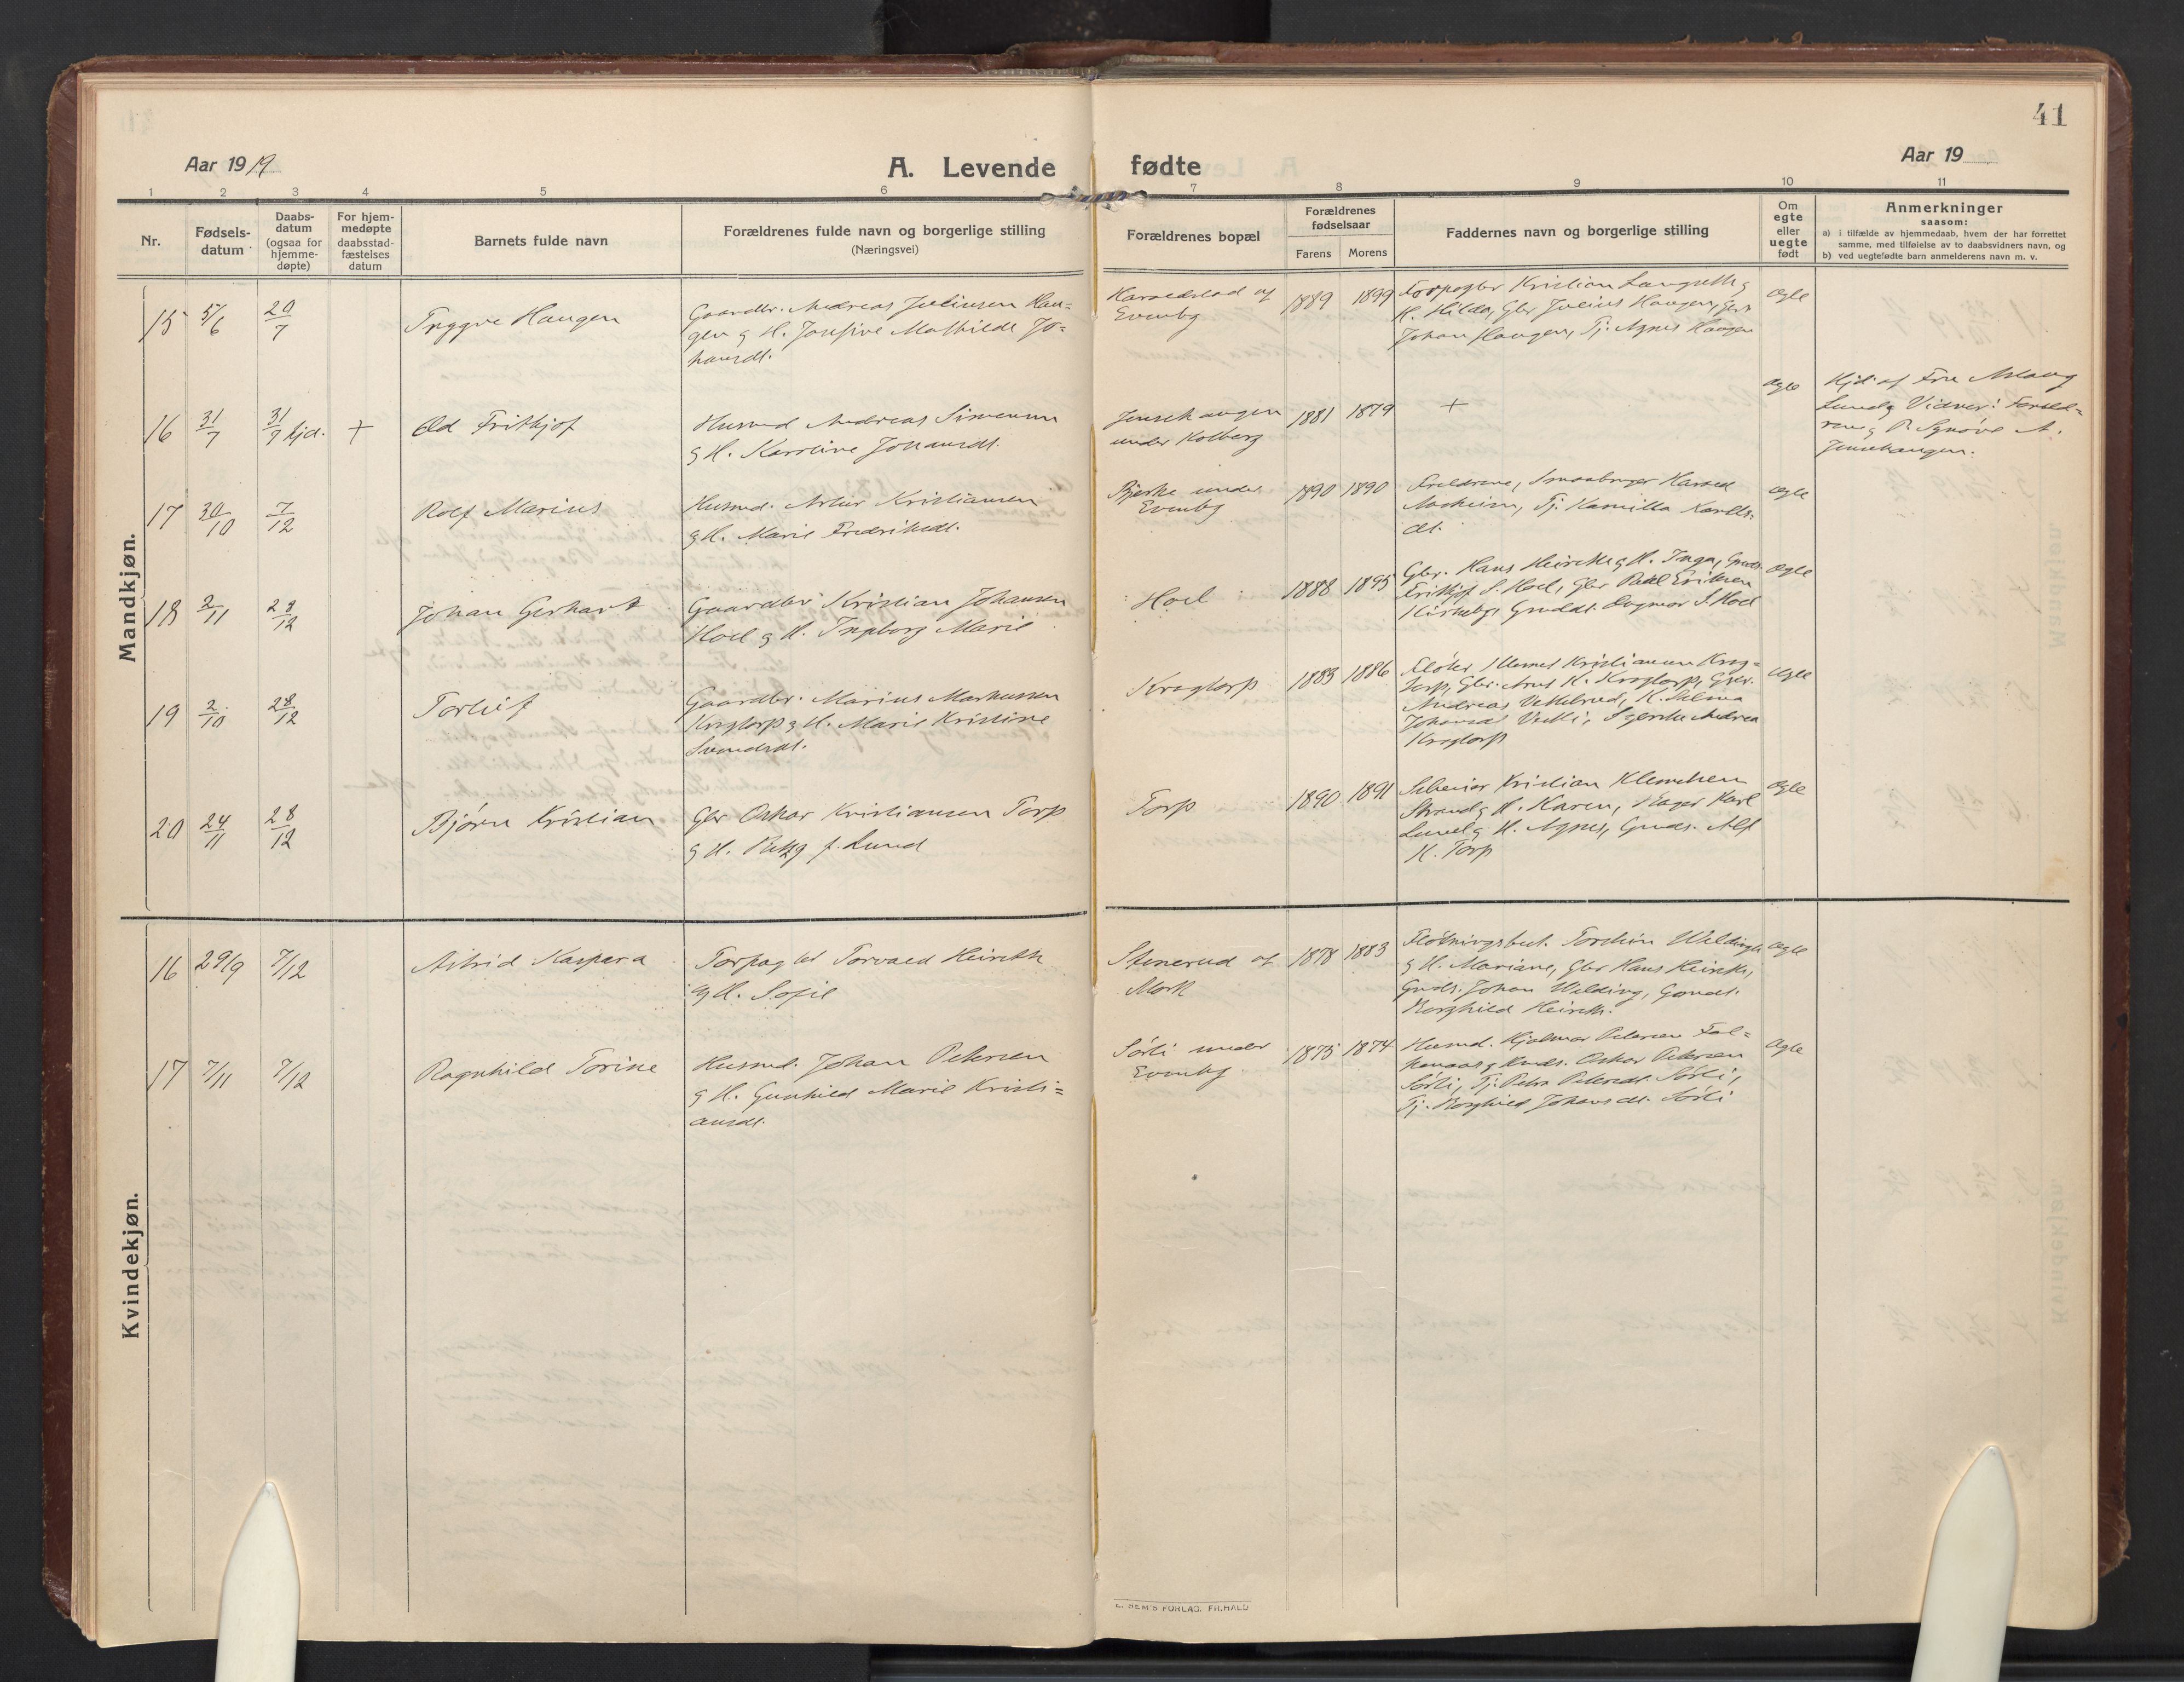 41
Aar 1919
A. Levende fødte
Aar 19
1 2 3 4 5 6 7 8 9 10 11
Nr.
Fødsels-
datum
Daabs-
datum
(ogsaa for
hjemme-
døpte)
For hjem-
medøpte
daabsstad-
fæstelses
datum
Barnets fulde navn
Forældrenes fulde navn og borgerlige stilling
(Næringsvei)
Forældrenes bopæl
Forældrenes
fødselsaar
Farens Morens
Faddernes navn og borgerlige stilling
Om
egte
eller
uegte
født
Anmerkninger
saasom:
a) i tilfælde av hjemmedaab, hvem der har forrettet
samme, med tilføielse av to daabsvidners navn, og
b) ved uegtefødte barn anmelderens navn m. v.
Mandkjøn.
15 5/6 20/7 Tryggve Haugen
Gaardbr. Andreas Juliusen Hau-
gen & H. Josefine Mathilde Jo-
hansdt.
Haraldstad af
Evenby
1889 1899
Forpagter Kristian Langseth &
H. Hilda, Gbr Julius Haugen, Gbr.
Johan Haugen, Tj. Agnes Haugen
Ægte
16 31/7 31/7 hjd. + Od Frithjof
Husmd Andreas Simensen
& H. Karoline Johansdt.
Jensehaugen
under Kolberg
1881 1879
+
Ægte
Hjd. af Fru Aslaug
Lund & Vidner: Foræld-
rene & P. Synöve A.
Jensehaugen.
17 30/10 7/12 Rolf Marius
Husmd. Artur Kristiansen
& H. Marie Fredriksdt.
Bjerke under
Evenby
1890 1890
Foreldrene, Smaabruger Harald
Aasheim, Tj. Kamilla Karls-
dt.
Ægte
18 2/11 28/12 Johan Gerhart
Gaardbr Kristian Johansen
Hoel & H. Ingeborg Marie
Hoel
1888 1895
Gbr. Hans Heireth & H. Inga, Gmds.
Frithjof S. Hoel, Gbr Paul Eriksen
Kirkeby, Gmddt. Dagmar S. Hoel
Ægte
19 2/10 28/12 Torleif
Gaardbr. Marius Markussen
Krogtorp & H. Marie Kristine
Svendsdt.
Krogtorp
1883 1886
Fløter Hans Kristiansen Krog-
torp, Gbr. Arne K. Krogtorp, Gbr.
Andreas Vettebrud, K. Selma
Andrea
Krogtorp
Ægte
20 24/11 28/12 Bjørn Kristian
Gbr Oskar Kristiansen Torp
& H. Petty f. Lund
Torp
1890 1891
Kristian Klemetsen
Strand & H. Karen, Bager Karl
Lund & H. Agnes, Gmds. Alf
K. Torp
Ægte
Kvindekjøn.
16 29/9 7/12 Astrid Kaspara
Forpagter Torvald Heireth
& H. Sofie
Stenerud af
Mork
1878 1883
Fløtningsbest. Torstein Wilding
& H. Mariane, Gbr Hans Heireth,
Gmds. Johan Wilding, Gmddt.
Borghild Heireth.
Ægte
17 7/11 7/12 Ragnhild Torine
Husmd. Johan Petersen
& H. Gunhild Marie Kristi-
ansdt.
Sörli under
Evenby
1875 1874
Husmd. Hjalmar Petersen Fal-
kenaas & Hmds. Oskar Petersen
Sörli, Tj. Petra Petersdt. Sörli,
Tj. Borghild Johansdt. Sörli
Ægte
E. SEM'S FORLAG, FR.HALD